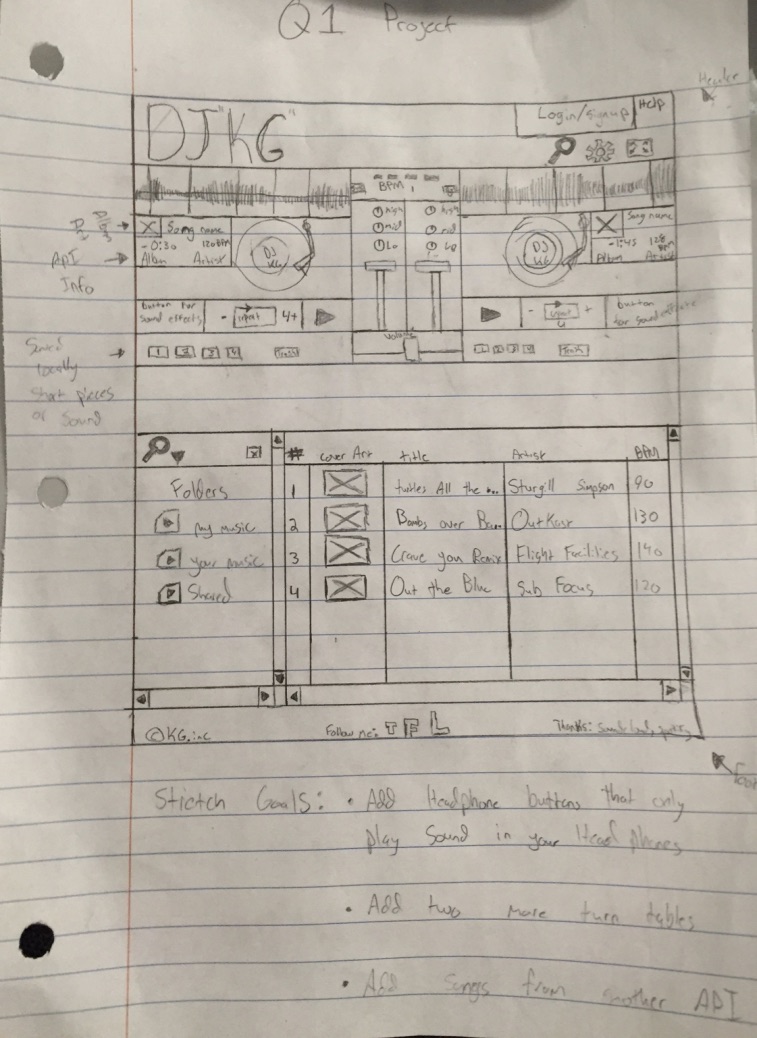 Q1 Project
Header
DJ "KG"
Login/signup
Help
BPM
high
mid
Lo
high
mid
Lo
Song name
-0:30 120BPM
Album Artist
DJ KG
DJ KG
Song name
-1:45 128 BPM
Album Artist
API
Info
button for
sound effects
- input 4+
- input +
4
button
for sound effects
Volume
1 2 3 4
1 2 3 4
locally
short pieces
of Sound
Folders
my music
your music
Shared
# Cover Art title Artist BPM
1 turtles All the ... Sturgill Simpson 90
2 Bombs over Ba... OutKast 130
3 Crave you Remix Flight Facilities 140
4 Out the Blue Sub Focus 120
©KG,inc
Follow me: T F L
Thanks:
Foot
Strtch Goals: • Add Headphone buttons that only
play Sound in your Head phones
• Add two more turn tables
• Add songs from another API